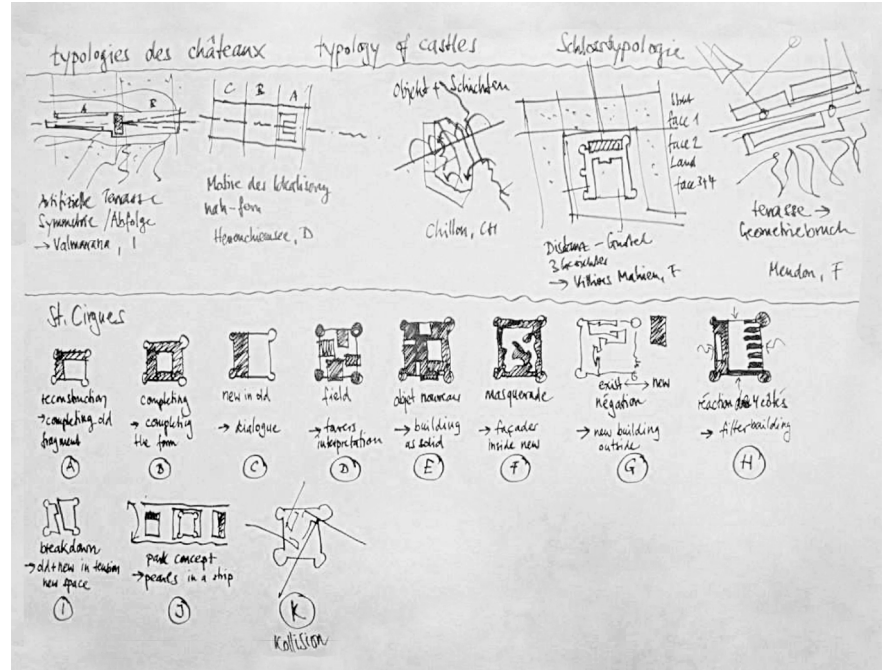 typologies des châteaux
typology of castles
Schlosstypologie
A
B
Artifizielle Terrasse
Symmetrie / Abfolge
→ Valmarana, I
C
B
A
Motive der Idealisierung
Herrenchiemsee, D
Objekt + Schichten
Chillon, CH
face 1
face 2
Land
face 3+4
Distanz -
3 Gesichter
→ Villiers Mahieu, F
terrasse →
Geometriebruch
Meudon, F
St. Cirgues
reconstruction
→ completing old
fragment
A
completing
→ completing
the form
B
new in old
→ dialogue
C
field
→ towers
interpretation
D
objet nouveau
→ building
as solid
E
masquerade
→ façades
inside new
F
exist ↔ new
négation
→ new building
outside
G
réaction 4 côtés
→ filterbuilding
H
breakdown
→ old+new in tension
new space
I
park concept
→ pearls in a strip
J
K
Kollision